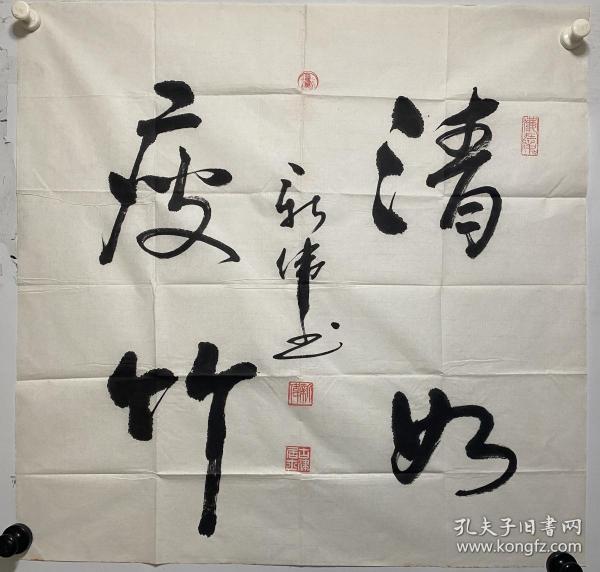 清如
瘦竹
新伟书
孔夫子旧书网
www.kongfz.com